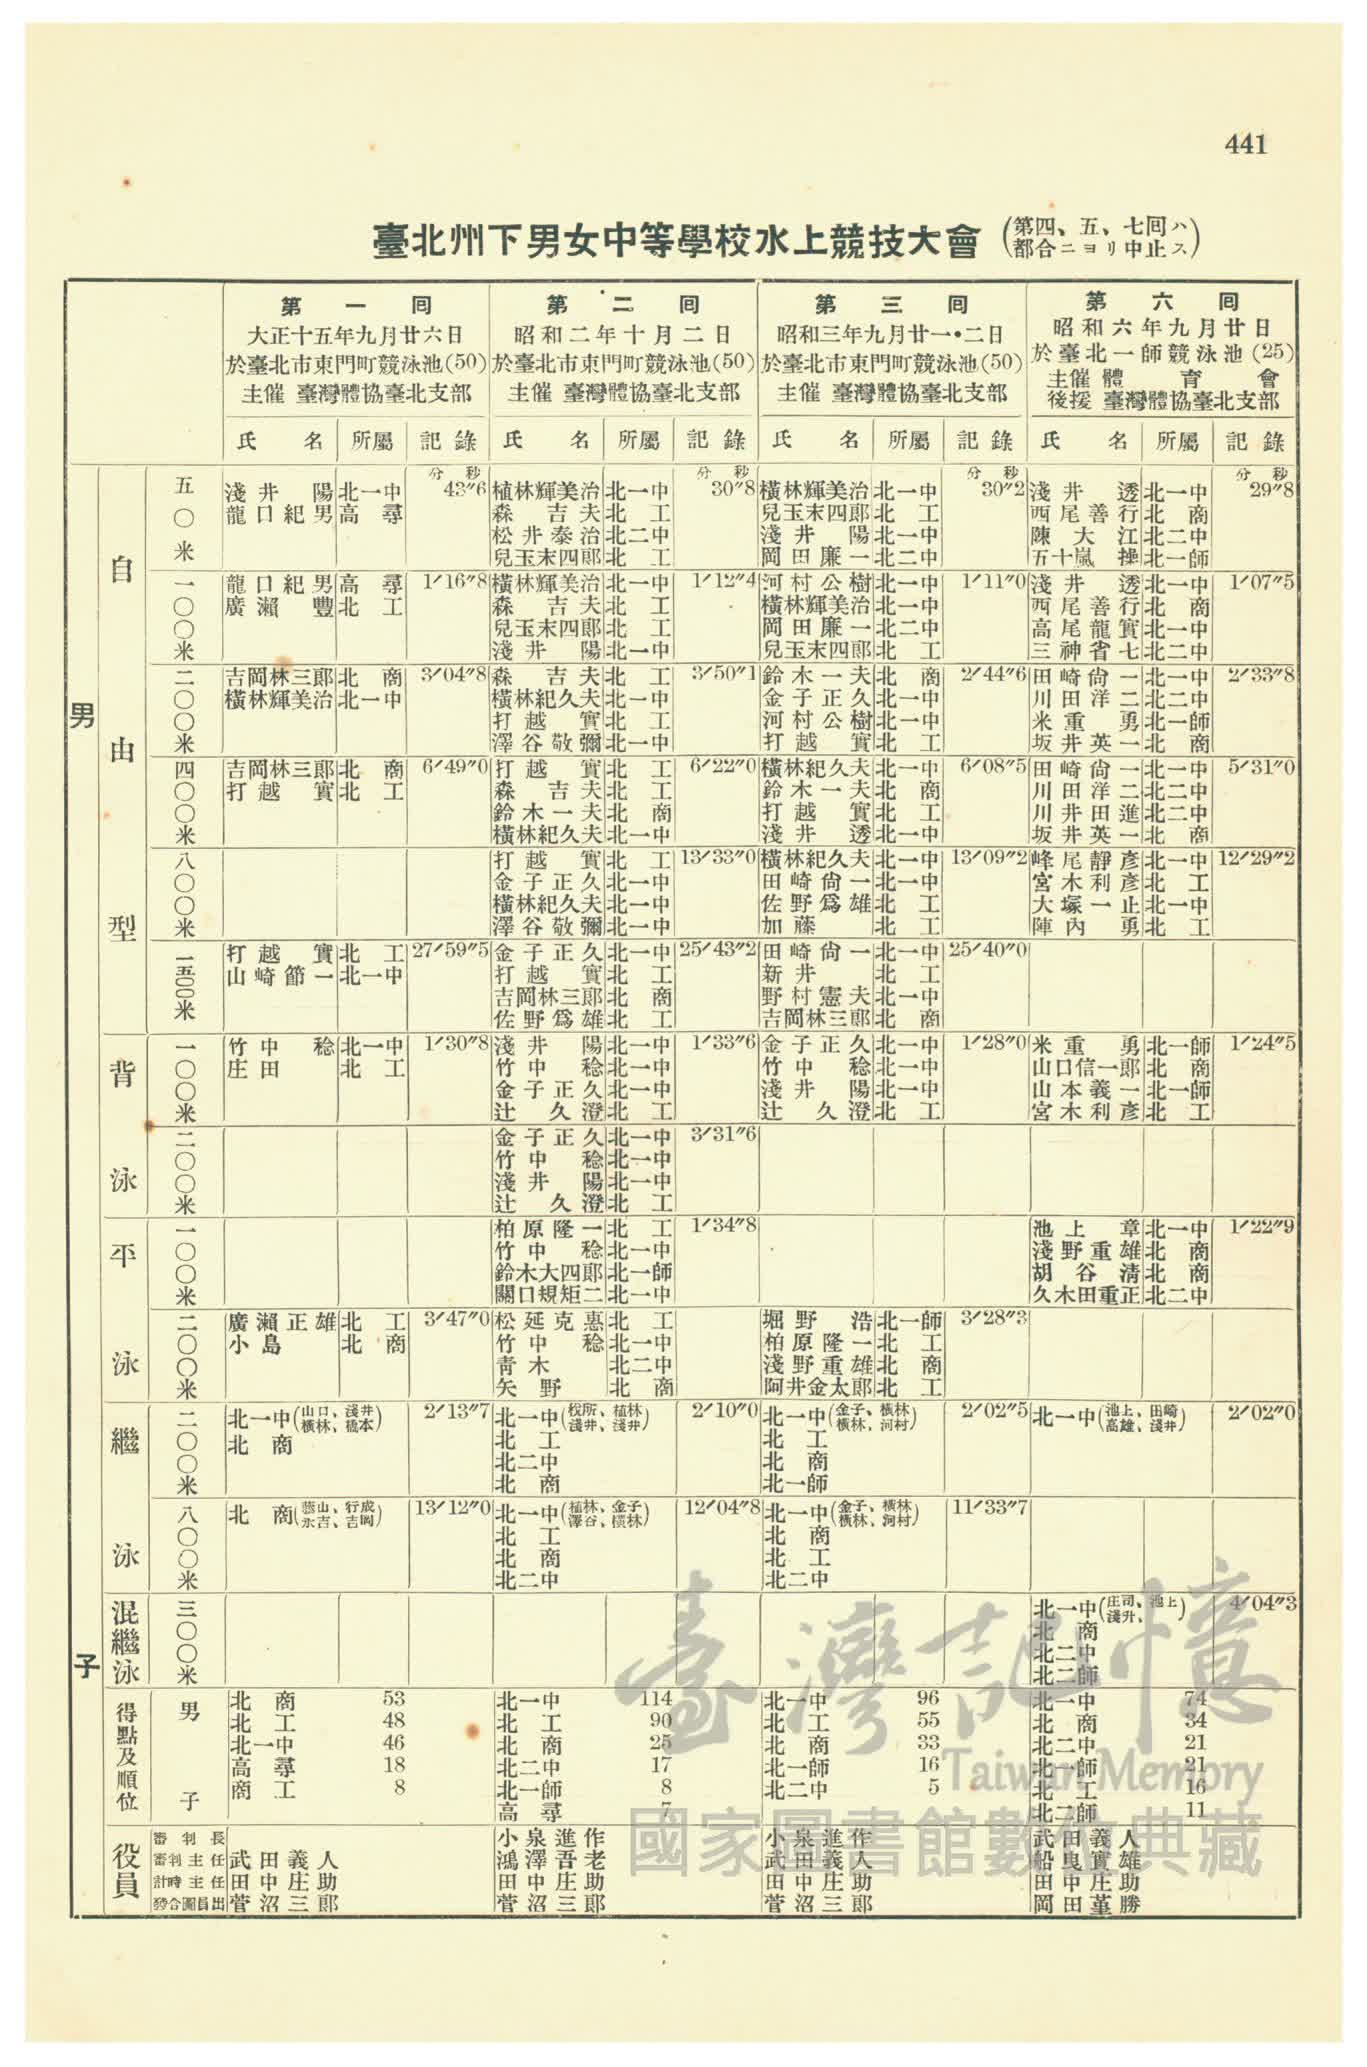 441
臺北州下男女中等學校水上競技大會 (第四、五、七囘ハ都合ニヨリ中止ス)
第一囘 第二囘 第三囘 第六囘
大正十五年九月廿六日 昭和二年十月二日 昭和三年九月廿一・二日 昭和六年九月廿日
於臺北市東門町競泳池(50) 於臺北市東門町競泳池(50) 於臺北市東門町競泳池(50) 於臺北一師競泳池(25)
主催 臺灣體協臺北支部 主催 臺灣體協臺北支部 主催 臺灣體協臺北支部 主催 體育會
後援 臺灣體協臺北支部
氏名 所屬 記錄 氏名 所屬 記錄 氏名 所屬 記錄 氏名 所屬 記錄
分秒 分秒 分秒 分秒
男子
自由型
五〇米
淺井陽 北一中 43″6 植林輝美治 北一中 30″8 橫林輝美治 北一中 30″2 淺井透 北一中 29″8
龍口紀男 高尋 森吉夫 北工 兒玉末四郎 北工 西尾善行 北商
松井泰治 北二中 淺井陽 北一中 陳大江 北二中
兒玉末四郎 北工 岡田廉一 北二中 五十嵐操 北一師
一〇〇米
龍口紀男 高尋 1′16″8 橫林輝美治 北一中 1′12″4 河村公樹 北一中 1′11″0 淺井透 北一中 1′07″5
廣瀨豐 北工 森吉夫 北工 橫林輝美治 北一中 西尾善行 北商
兒玉末四郎 北工 岡田廉一 北二中 高尾龍實 北一中
淺井陽 北一中 兒玉末四郎 北工 三神省七 北二中
二〇〇米
吉岡林三郎 北商 3′04″8 森吉夫 北工 3′50″1 鈴木一夫 北商 2′44″6 田崎尙一 北一中 2′33″8
橫林輝美治 北一中 橫林紀久夫 北一中 金子正久 北一中 川田洋二 北二中
打越實 北工 河村公樹 北一中 米重勇 北一師
澤谷敬彌 北一中 打越實 北工 坂井英一 北商
四〇〇米
吉岡林三郎 北商 6′49″0 打越實 北工 6′22″0 橫林紀久夫 北一中 6′08″5 田崎尙一 北一中 5′31″0
打越實 北工 森吉夫 北工 鈴木一夫 北商 川田洋二 北二中
鈴木一夫 北商 打越實 北工 川井田進 北二中
橫林紀久夫 北一中 淺井透 北一中 坂井英一 北商
八〇〇米
打越實 北工 13′33″0 橫林紀久夫 北一中 13′09″2 峰尾靜彥 北一中 12′29″2
金子正久 北一中 田崎尙一 北一中 宮木利彥 北工
橫林紀久夫 北一中 佐野爲雄 北工 大塚一止 北一中
澤谷敬彌 北一中 加藤 北工 陣內勇 北工
一五〇〇米
打越實 北工 27′59″5 金子正久 北一中 25′43″2 田崎尙一 北一中 25′40″0
山崎節一 北一中 打越實 北工 新井 北工
吉岡林三郎 北商 野村憲夫 北一中
佐野爲雄 北工 吉岡林三郎 北商
背泳
一〇〇米
竹中稔 北一中 1′30″8 淺井陽 北一中 1′33″6 金子正久 北一中 1′28″0 米重勇 北一師 1′24″5
庄田 北工 竹中稔 北一中 竹中稔 北一中 山口信一郎 北商
金子正久 北一中 淺井陽 北一中 山本義一 北一師
辻久澄 北工 辻久澄 北工 宮木利彥 北工
二〇〇米
金子正久 北一中 3′31″6
竹中稔 北一中
淺井陽 北一中
辻久澄 北工
平泳
一〇〇米
柏原隆一 北工 1′34″8 池上章 北一中 1′22″9
竹中稔 北一中 淺野重雄 北商
鈴木大四郎 北一師 胡谷淸 北商
關口規矩二 北一中 久木田重正 北二中
二〇〇米
廣瀨正雄 北工 3′47″0 松延克惠 北工 堀野浩 北一師 3′28″3
小島 北商 竹中稔 北一中 柏原隆一 北工
靑木 北二中 淺野重雄 北商
矢野 北商 阿井金太郎 北工
繼泳
二〇〇米
北一中(山口、淺井 橫林、橋本) 2′13″7 北一中(稅所、植林 淺井、淺井) 2′10″0 北一中(金子、橫林 橫林、河村) 2′02″5 北一中(池上、田崎 高雄、淺井) 2′02″0
北商 北工 北工
北二中 北商
北商 北一師
八〇〇米
北商(藤山、行成 永吉、吉岡) 13′12″0 北一中(植林、金子 澤谷、橫林) 12′04″8 北一中(金子、橫林 橫林、河村) 11′33″7
北工 北商
北商 北工
北二中 北二中
混繼泳
三〇〇米
北一中(庄司、池上 淺井、) 4′04″3
北商
北二中
北二師
得點及順位
男子
北商 53 北一中 114 北一中 96 北一中 74
北工 48 北工 90 北工 55 北商 34
北一中 46 北商 25 北商 33 北二中 21
高尋 18 北二中 17 北一師 16 北一師 21
商工 8 北一師 8 北二中 5 北工 16
高尋 7 北二師 11
役員
審判長 小泉進作 小泉進作 武田義人
審判主任 武田義人 鴻澤吾老 武田義人 船曳實雄
計時主任 田中庄助 田中庄助 田中庄助 田中庄助
發合圖員出 菅沼三郎 菅沼三郎 菅沼三郎 岡田菫勝
臺灣記憶
Taiwan Memory
國家圖書館數位典藏